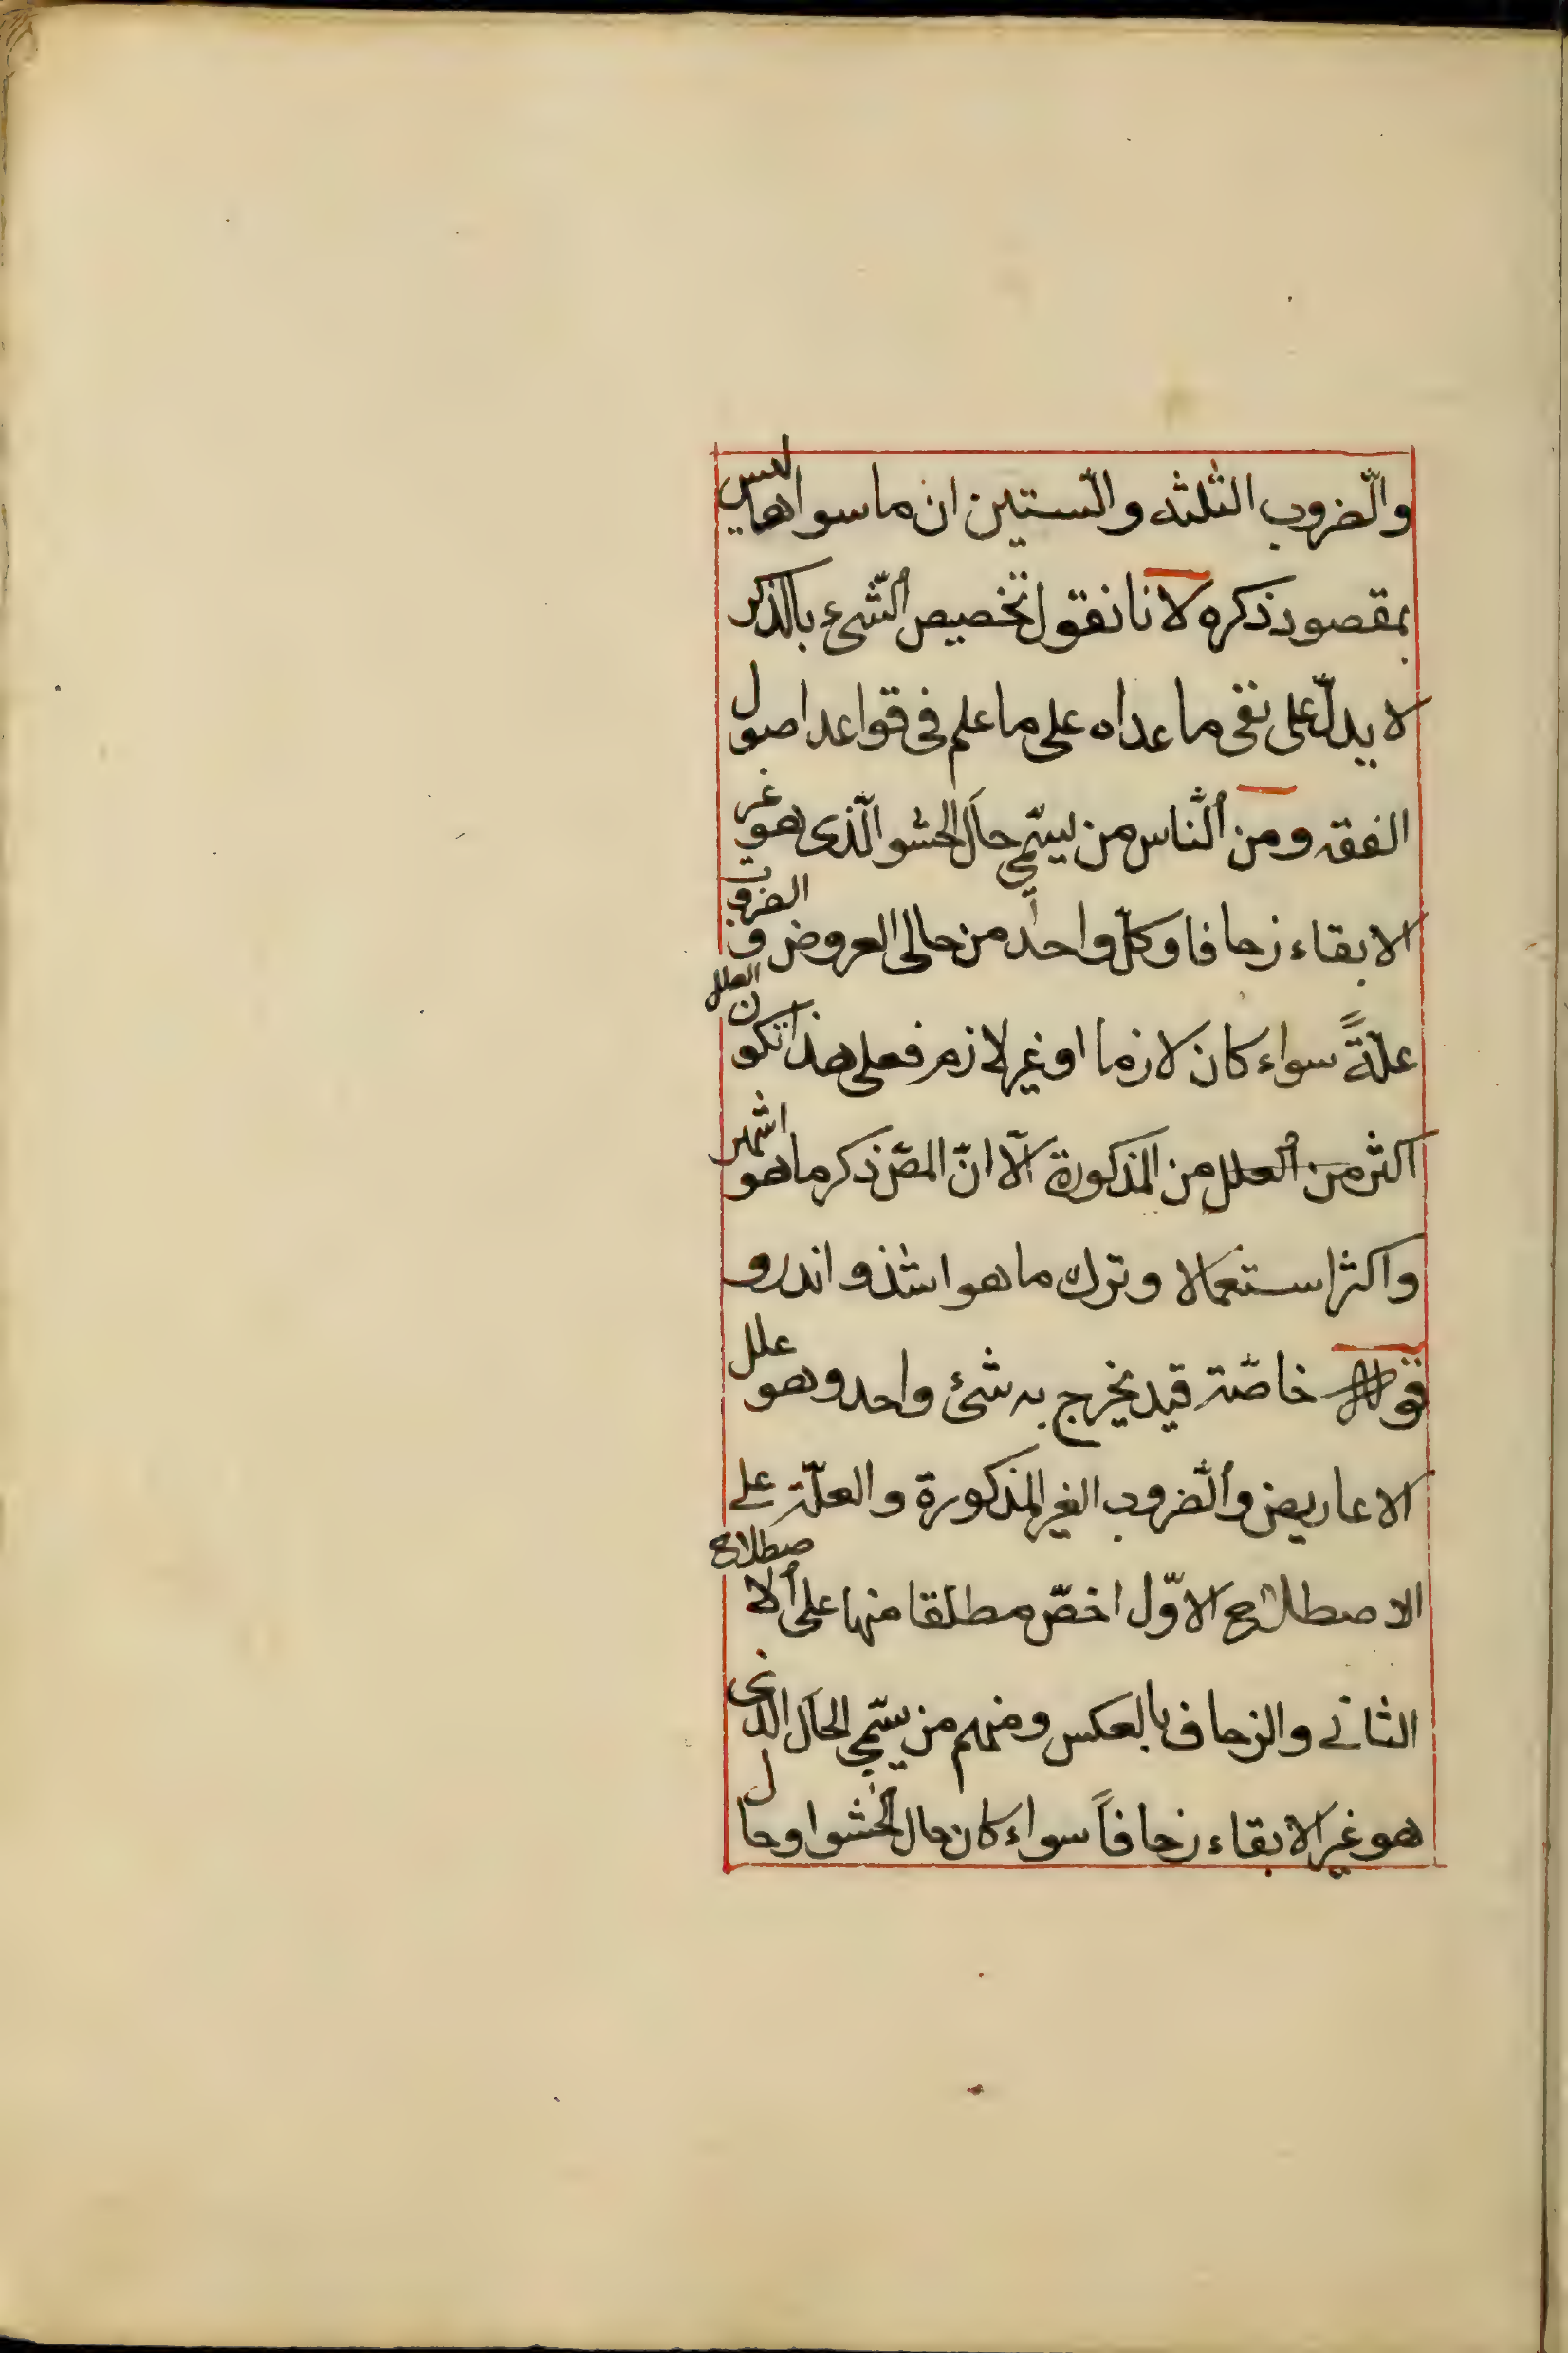 والّضروب الثلثه والّستين ان ما سواها ليس
بمقصود ذكره لانا نقول تخصيص الشّىء بالذكر
لا يدلّ على نفى ما عداه على ما علم فى قواعد اصول
الفقه ومن النّاس من يسمّى حال الحشو الّذى هو غير
الابقاء زحافا وكلّ واحد من حالى العروض و الضروب
علّةً سواء كان لازما او غير لازم فعلى هذا تكون العلل
اكثر من العلل من المذكورة الّا انّ المصّ ذكر ما هو اشهر
واكثر استعمالا وترك ما هو اشذ واندر و
قوله خاصّة قيد يخرج به شئ واحد وهو علل
الاعاريض والضّروب الغير المذكورة والعلّة على
الاصطلاح الاوّل اخصّ مطلقا منها على الاصطلاح
الثانى والزحاف بالعكس ومنهم من يسمّى الحال الذى
هو غير الابقاء زحافاً سواء كان حال الحشو او حال